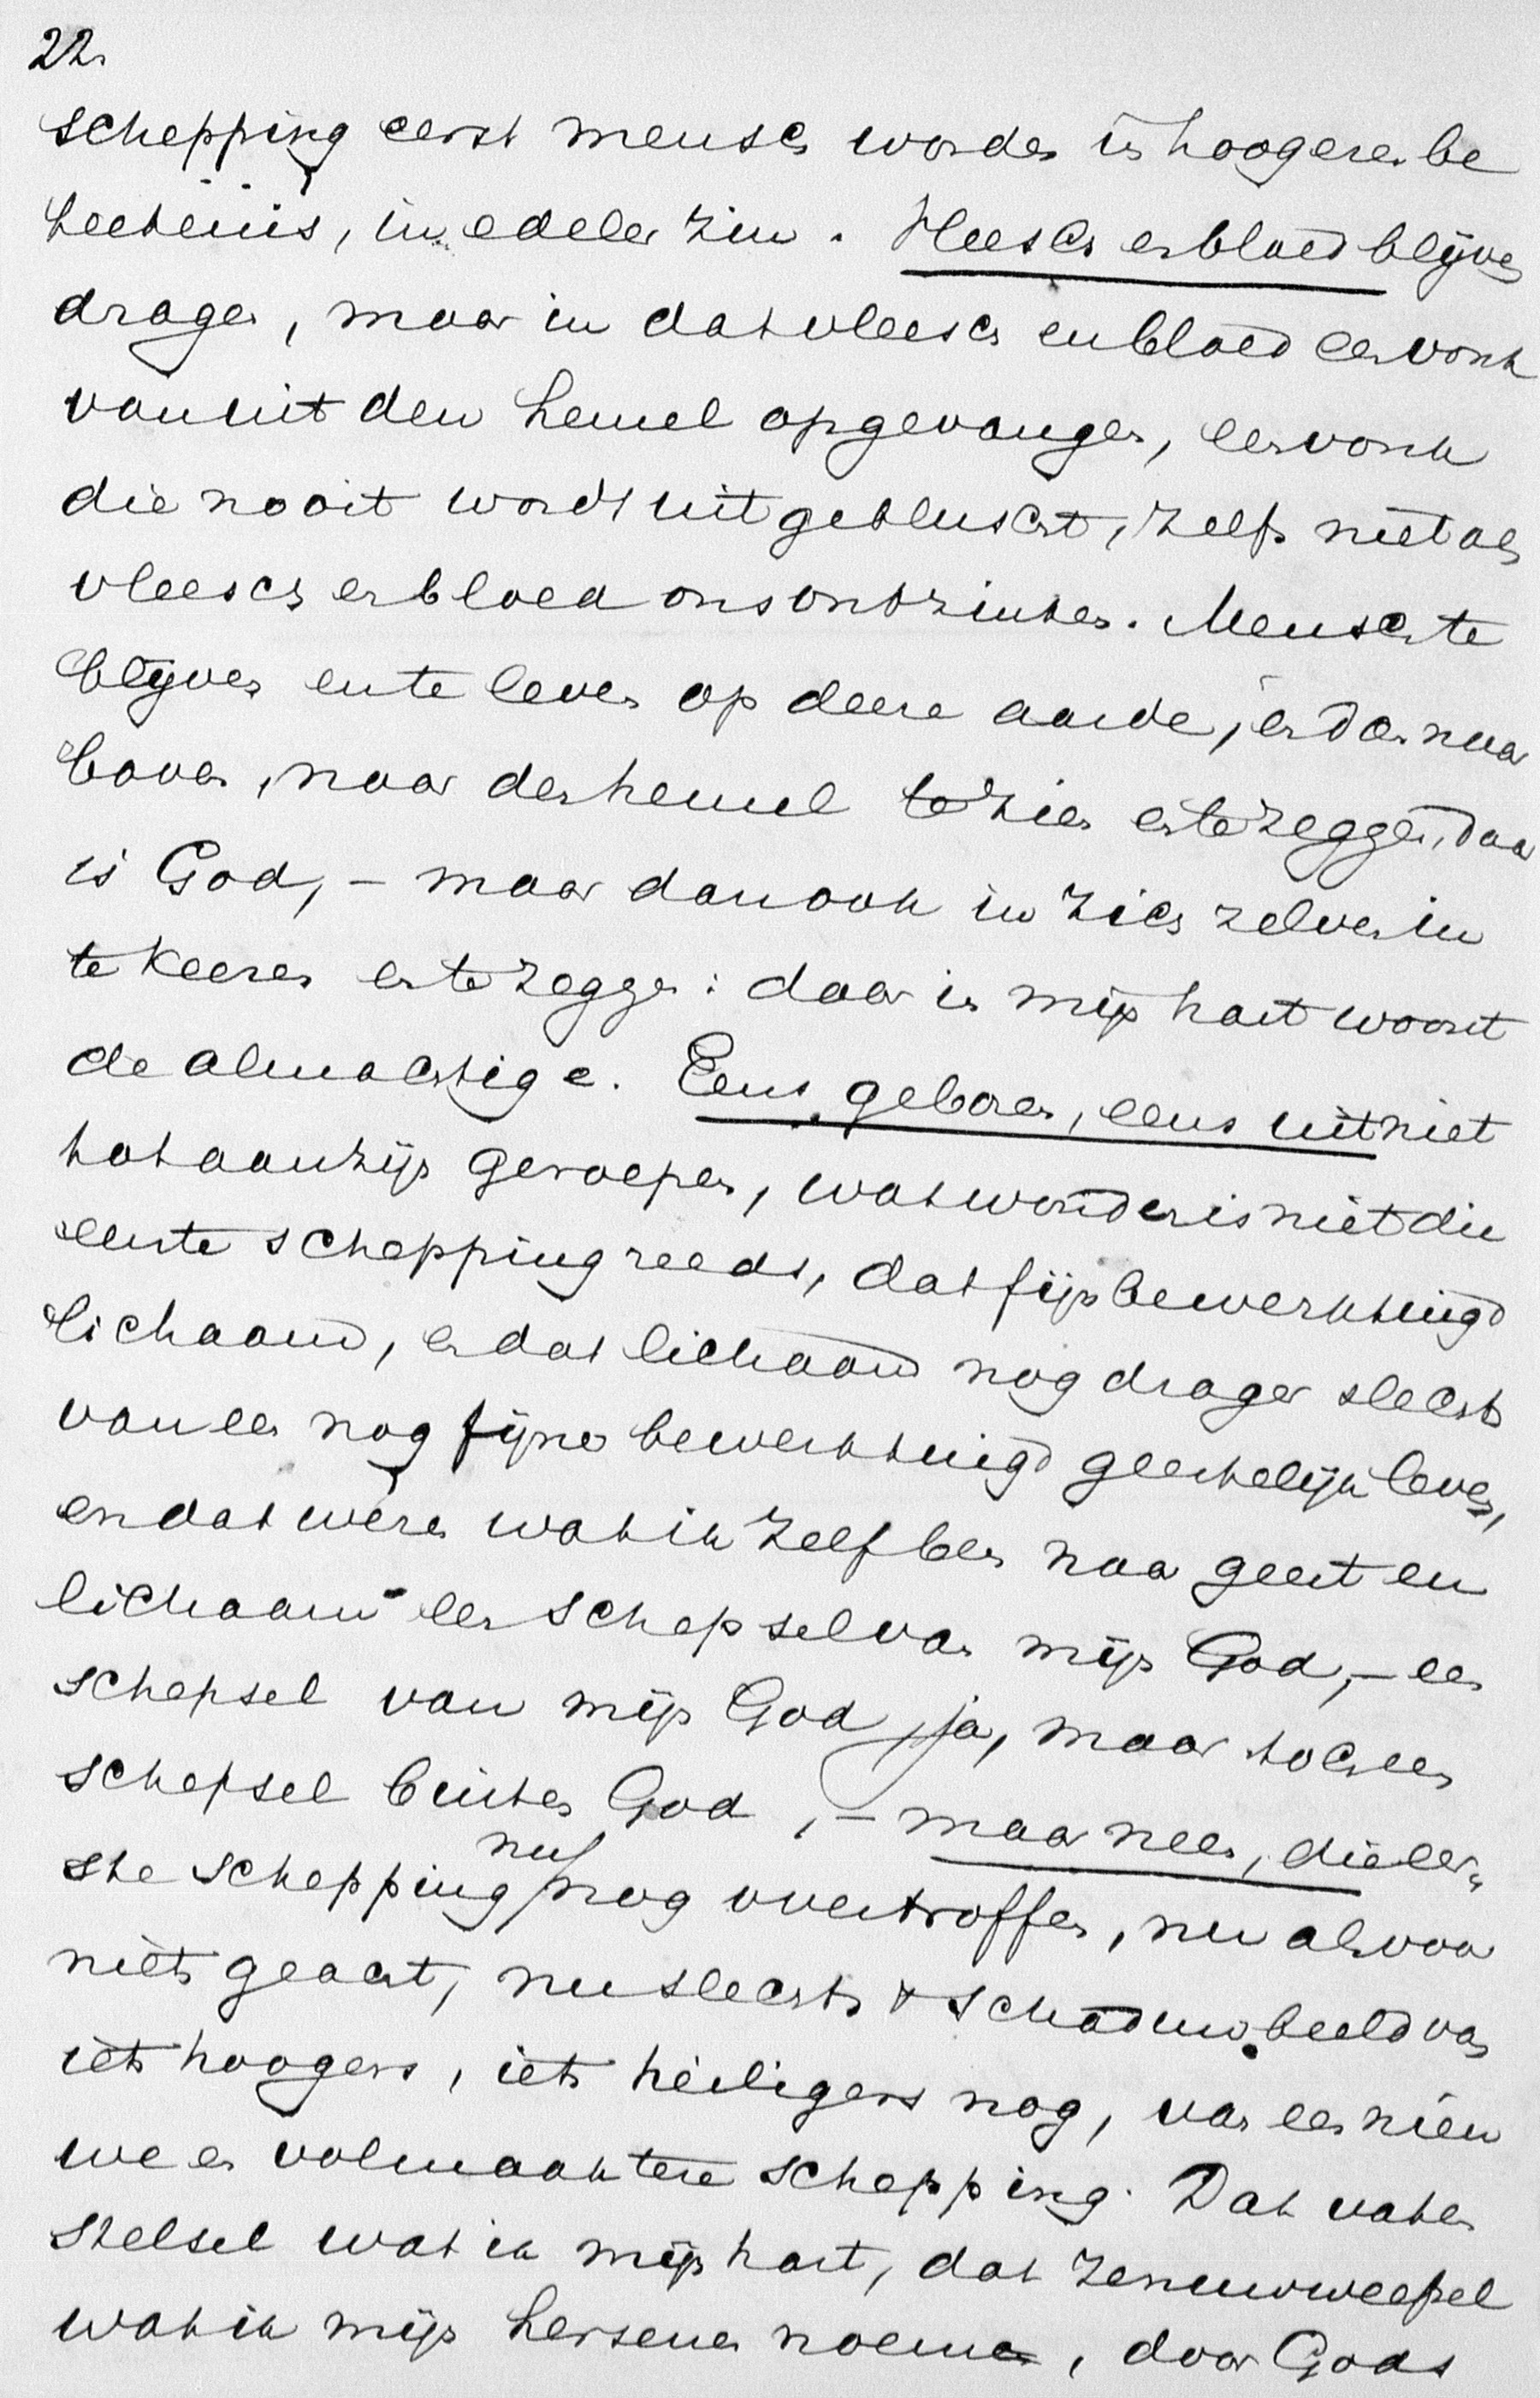 22.
schepping eerst mensch worden in hoogere be
teekenis, in edeler zin. Vleesch en bloed blijven
drager, maar in dat vleesch en bloed een vonk
van uit den hemel opgevangen, een vonk
die nooit wordt uitgebluscht, zelfs niet als
vleesch en bloed ons ontzinken. Mensch te
blijven en te leven op deze aarde, en dan naar
boven, naar den hemel te zien en te zeggen, daar
is God, – maar dan ook in zich zelven in
te keeren en te zeggen: daar in mijn hart woont
de almachtige. Eens geboren, eens uit niet
tot aanzijn geroepen, wat wonder is niet die
eerste schepping reeds, dat fijn bewerktuigd
lichaam, en dat lichaam nog drager slechts
van een nog fijner bewerktuigd geestelijk leven,
en dat wezen wat ik zelf ben naar geest en
lichaam een schepsel van mijn God, – een
schepsel van mijn God, ja, maar toch een
schepsel buiten God, – maar neen, die eer„
ste schepping nu nog overtroffen, nu als voor
niets geacht, nu slechts schaduwbeeld van
iets hoogers, iets heiligers nog, van een nieu
we en volmaaktere schepping. Dat vaten
stelsel wat ik mijn hart, dat zenuwweefsel
wat ik mijn hersenen noem, door Gods